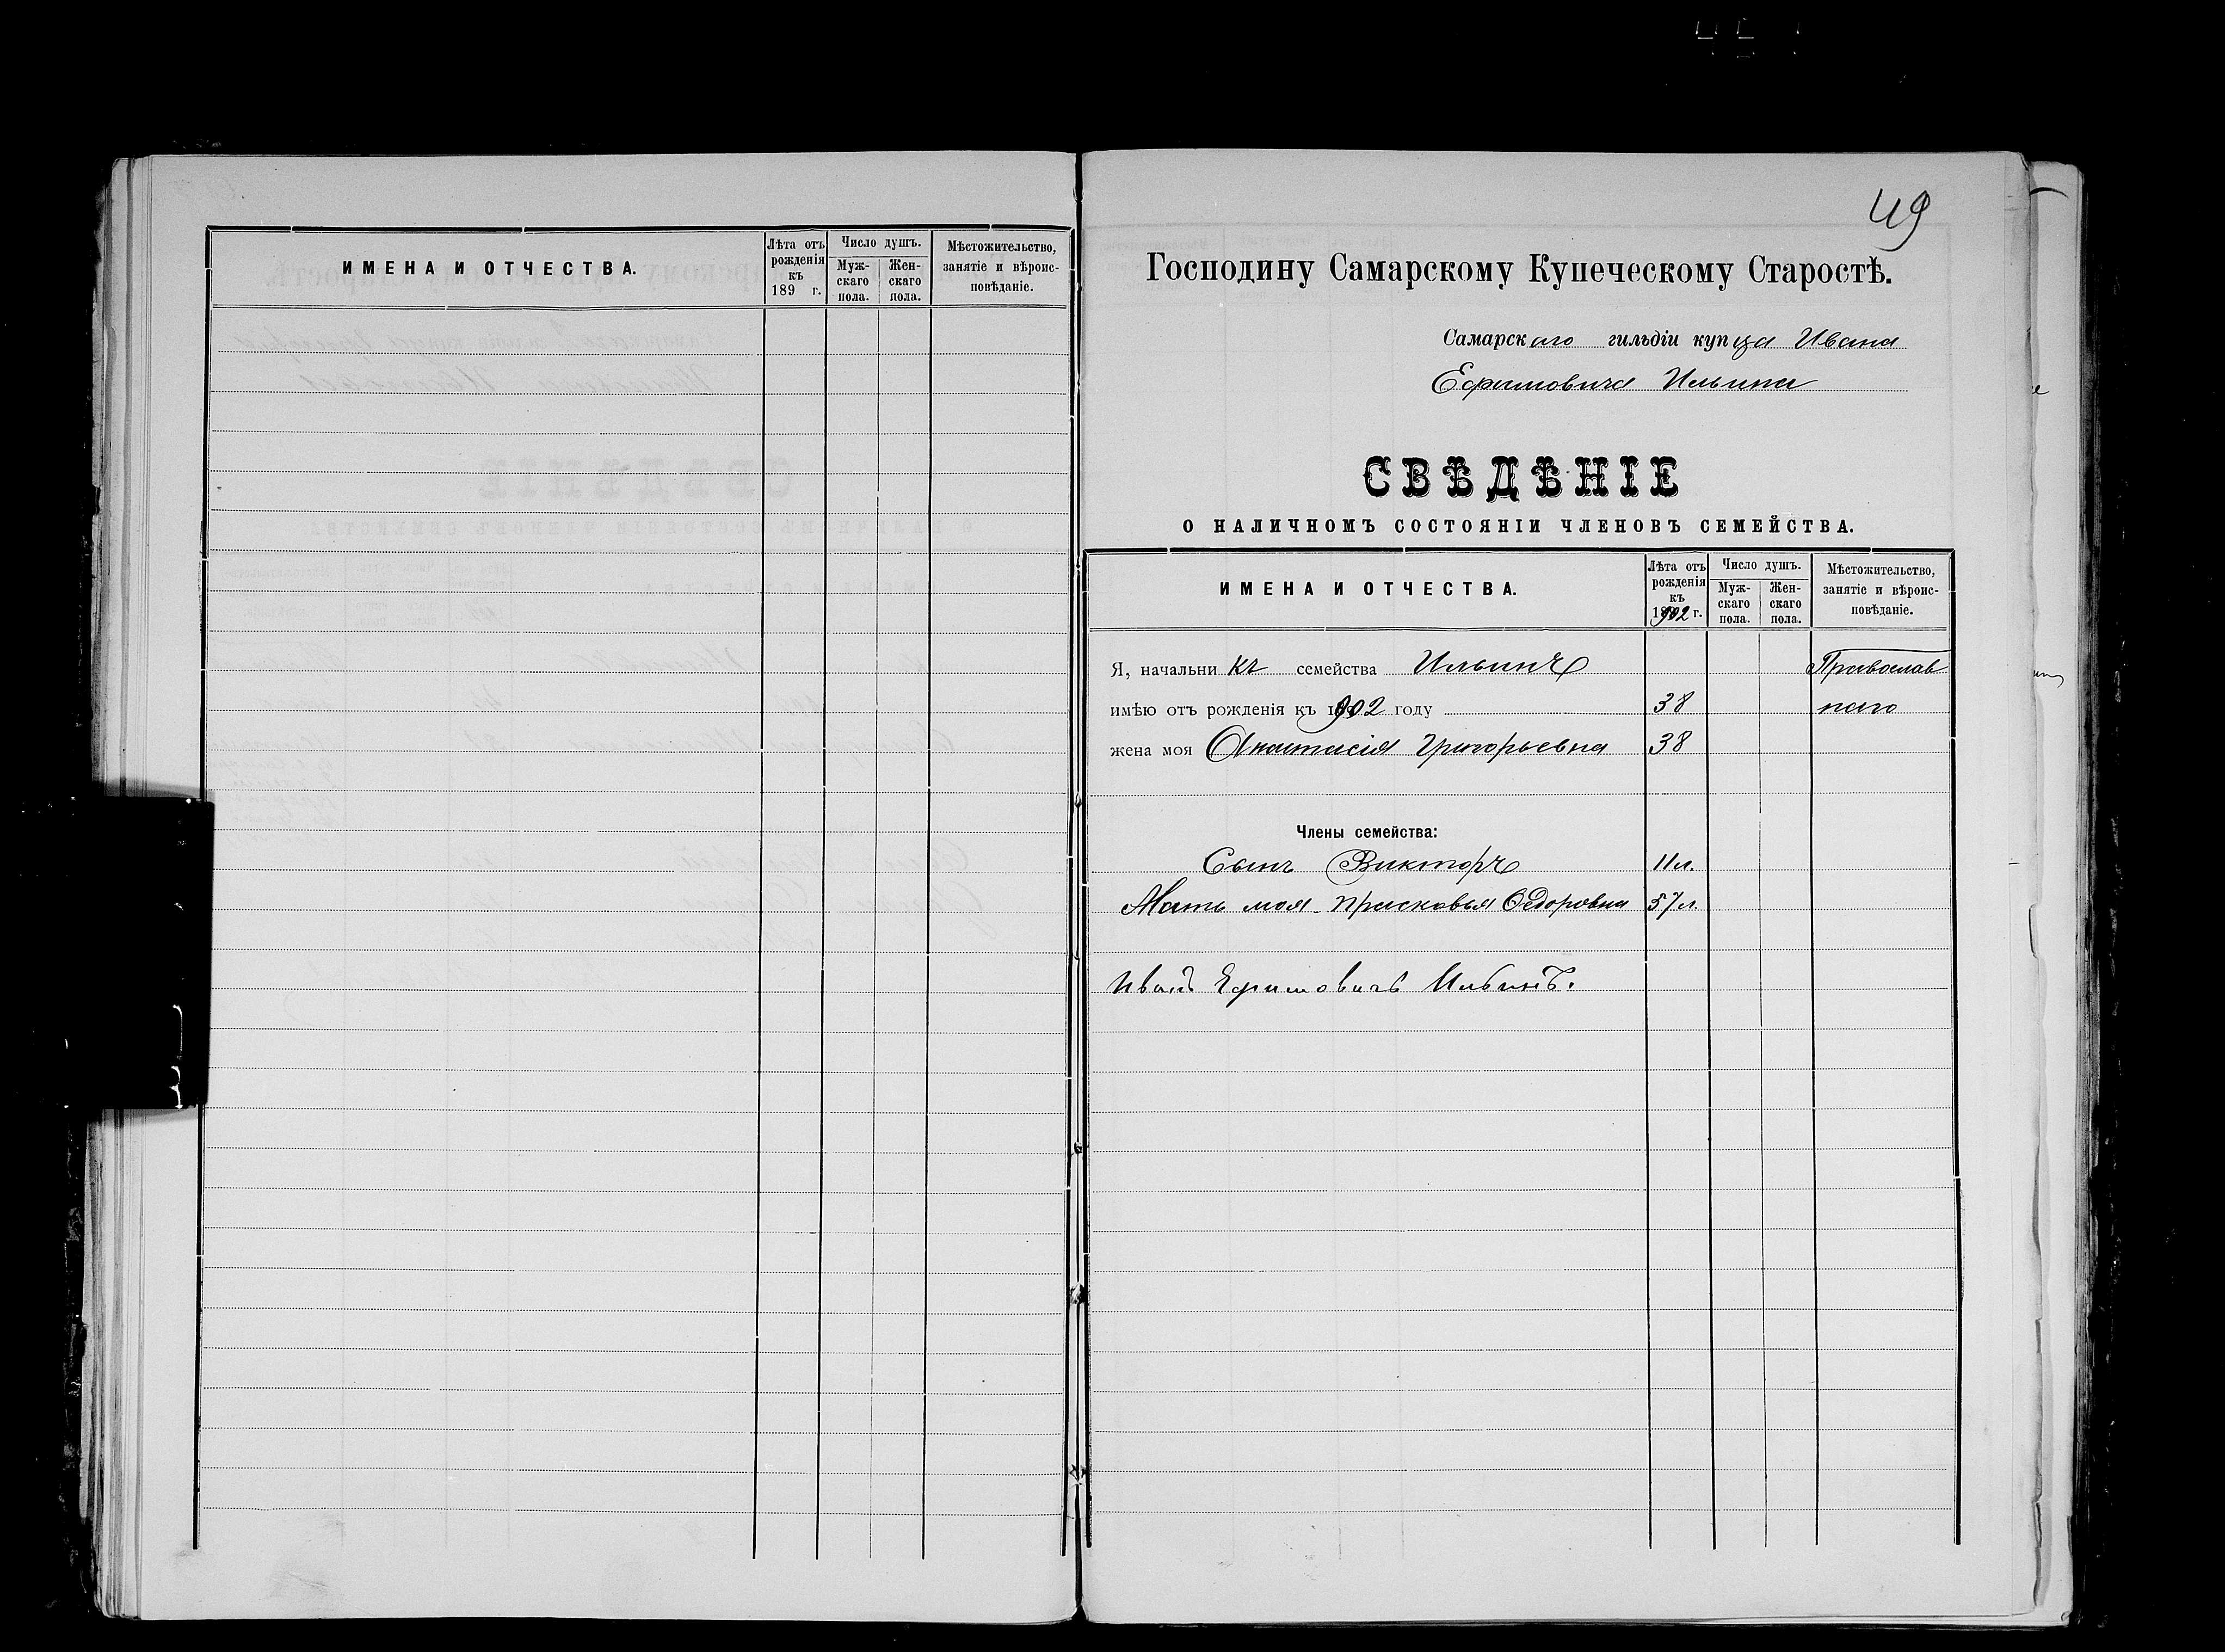 ИМЕНА И ОТЧЕСТВА.
Лѣта отъ рожденія къ 189 г.
Число душъ.
Мужскаго пола.
Женскаго пола.
Мѣстожительство, занятіе и вѣроисповѣданіе.
49
Господину Самарскому Купеческому Старостѣ.
Самарскаго гильдіи купца Ивана
Ефимовича Ильина
СВѢДѢНІЕ
О НАЛИЧНОМЪ СОСТОЯНІИ ЧЛЕНОВЪ СЕМЕЙСТВА.
ИМЕНА И ОТЧЕСТВА.
Лѣта отъ рожденія къ 1902 г.
Число душъ.
Мужскаго пола.
Женскаго пола.
Мѣстожительство, занятіе и вѣроисповѣданіе.
Я, начальникъ семейства Ильинъ Православ
имѣю отъ рожденія къ 1902 году 38 наго
жена моя Анастасія Григорьевна 38
Члены семейства:
Сынъ Викторъ 11 л.
Мать моя Прасковья Ѳедоровна 57 л.
Иванъ Ефимовичъ Ильинъ.